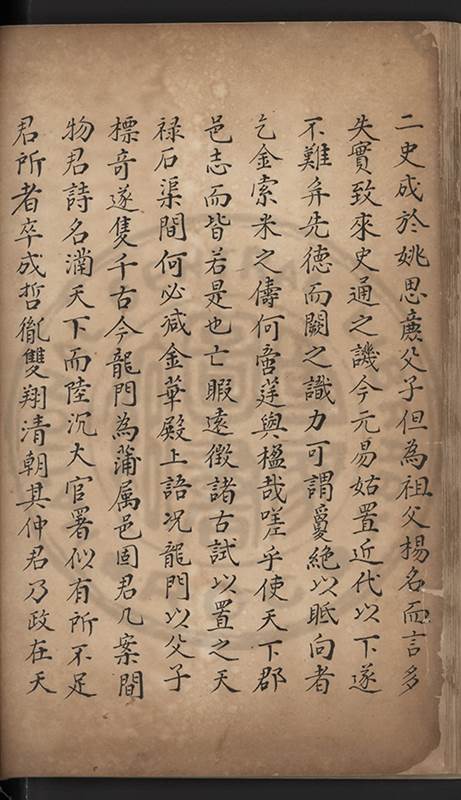 二史成於姚思廉父子但為祖父揚名而言多
失實致來史通之譏今元易姑置近代以下遂
不難弁先德而闕之識力可謂敻絕以眡向者
乞金索米之儔何啻莛與楹哉嗟乎使天下郡
邑志而皆若是也亡暇遠徵諸古試以置之天
祿石渠間何必減金華殿上語况龍門以父子
標奇遂隻千古今龍門為蒲属邑固君几案間
物君詩名滿天下而陸沉大官署似有所不足
君所者卒成哲胤雙翔清朝其仲君乃政在天